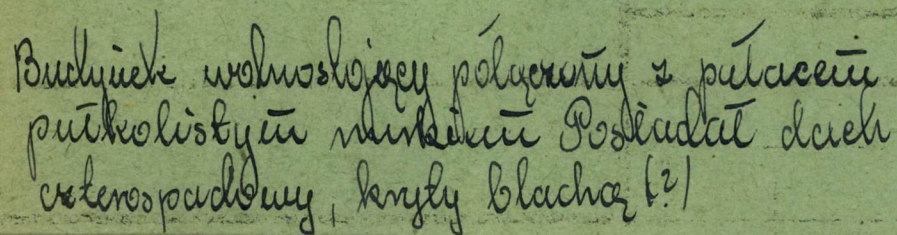 Budynek wolnostojący połączony z pałacem
półkolistym murkiem Posiadał dach
czterospadowy, kryty blachą (?)